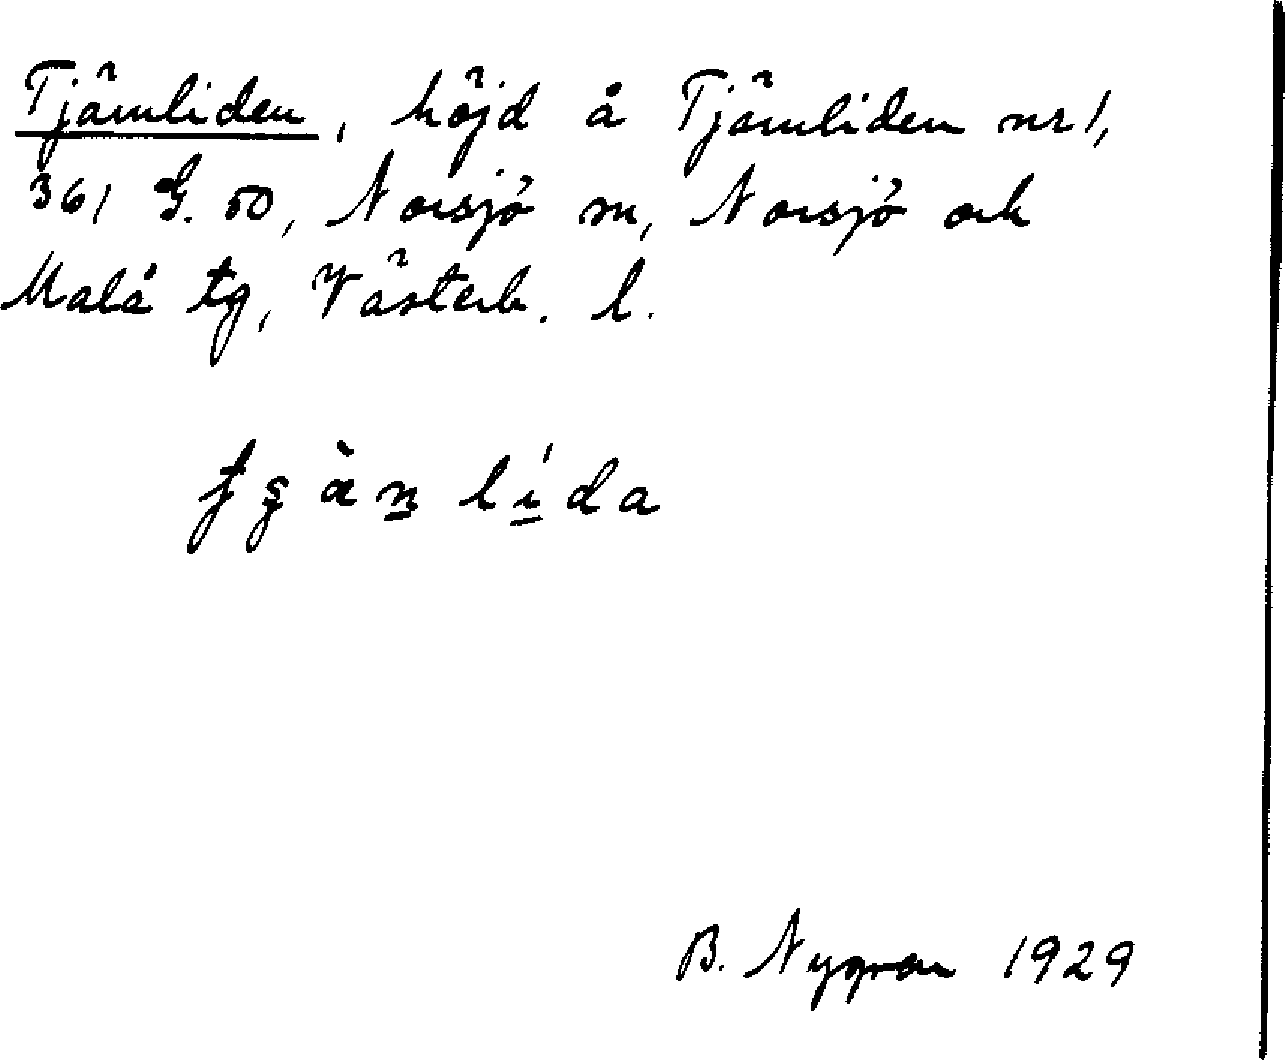 Tjämliden, höjd å Tjämliden nr 1,
361 G. 50, Norsjö sn, Norsjö och
Malå tg, Västerb. l.
lída
B. Nygren 1929